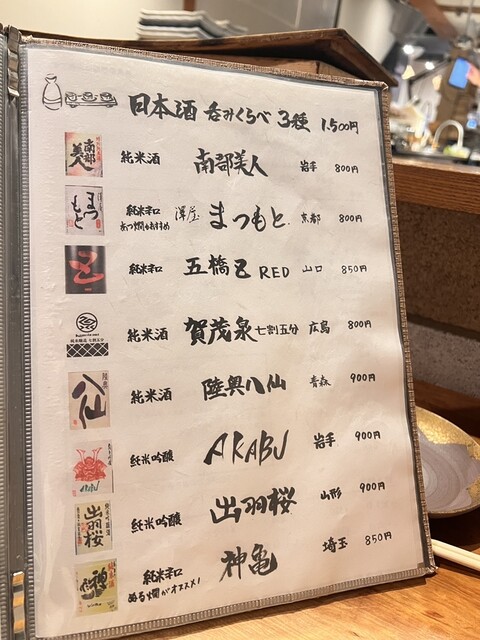 日本酒 呑みくらべ 3種 1,500円
南部美人 純米酒 南部美人 岩手 800円
まつもと 純米辛口 あつ燗もおすすめ 澤屋 まつもと 京都 800円
五 純米辛口 五橋 五 RED 山口 850円
純米酒 賀茂泉 七割五分 広島 800円
八仙 純米酒 陸奥八仙 青森 900円
純米吟醸 AKABU 岩手 900円
出羽桜 純米吟醸 出羽桜 山形 900円
純米辛口 ぬる燗がオススメ! 神亀 埼玉 850円